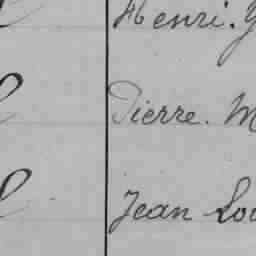 Henri.
Pierre. M
Jean Lou